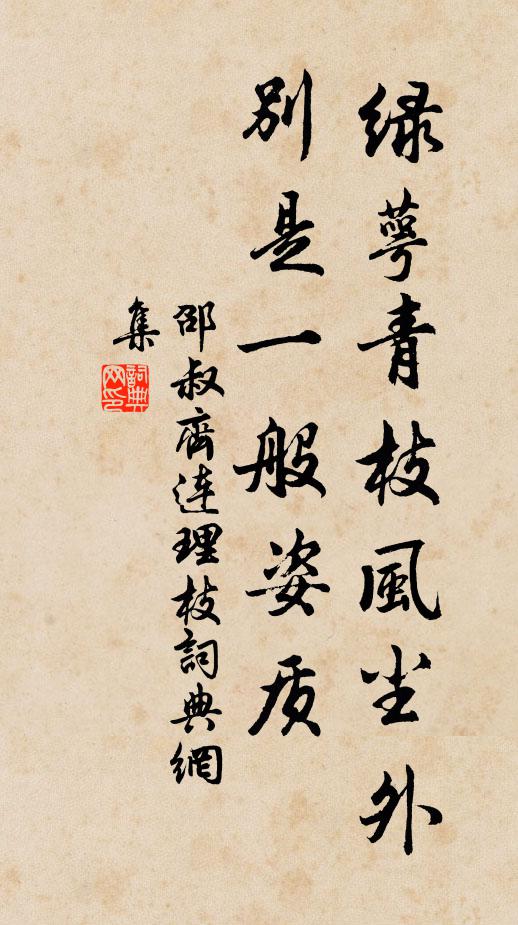 绿萼青枝風尘外
别是一般姿质
邵叔齊连理枝詞典網
集
詞典网印